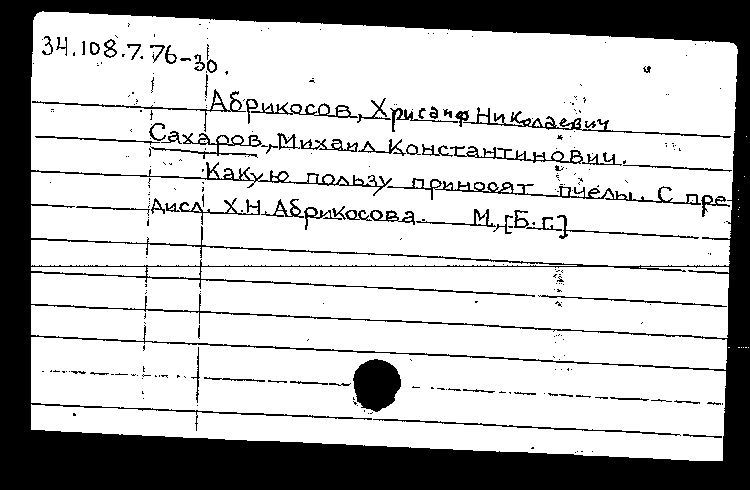 34.108.7.76-30.
Абрикосов, Хрисанф Николаевич
Сахаров, Михаил Константинович.
Какую пользу приносят пчелы. С пре
дисл. Х.Н. Абрикосова. М., [Б.г.]